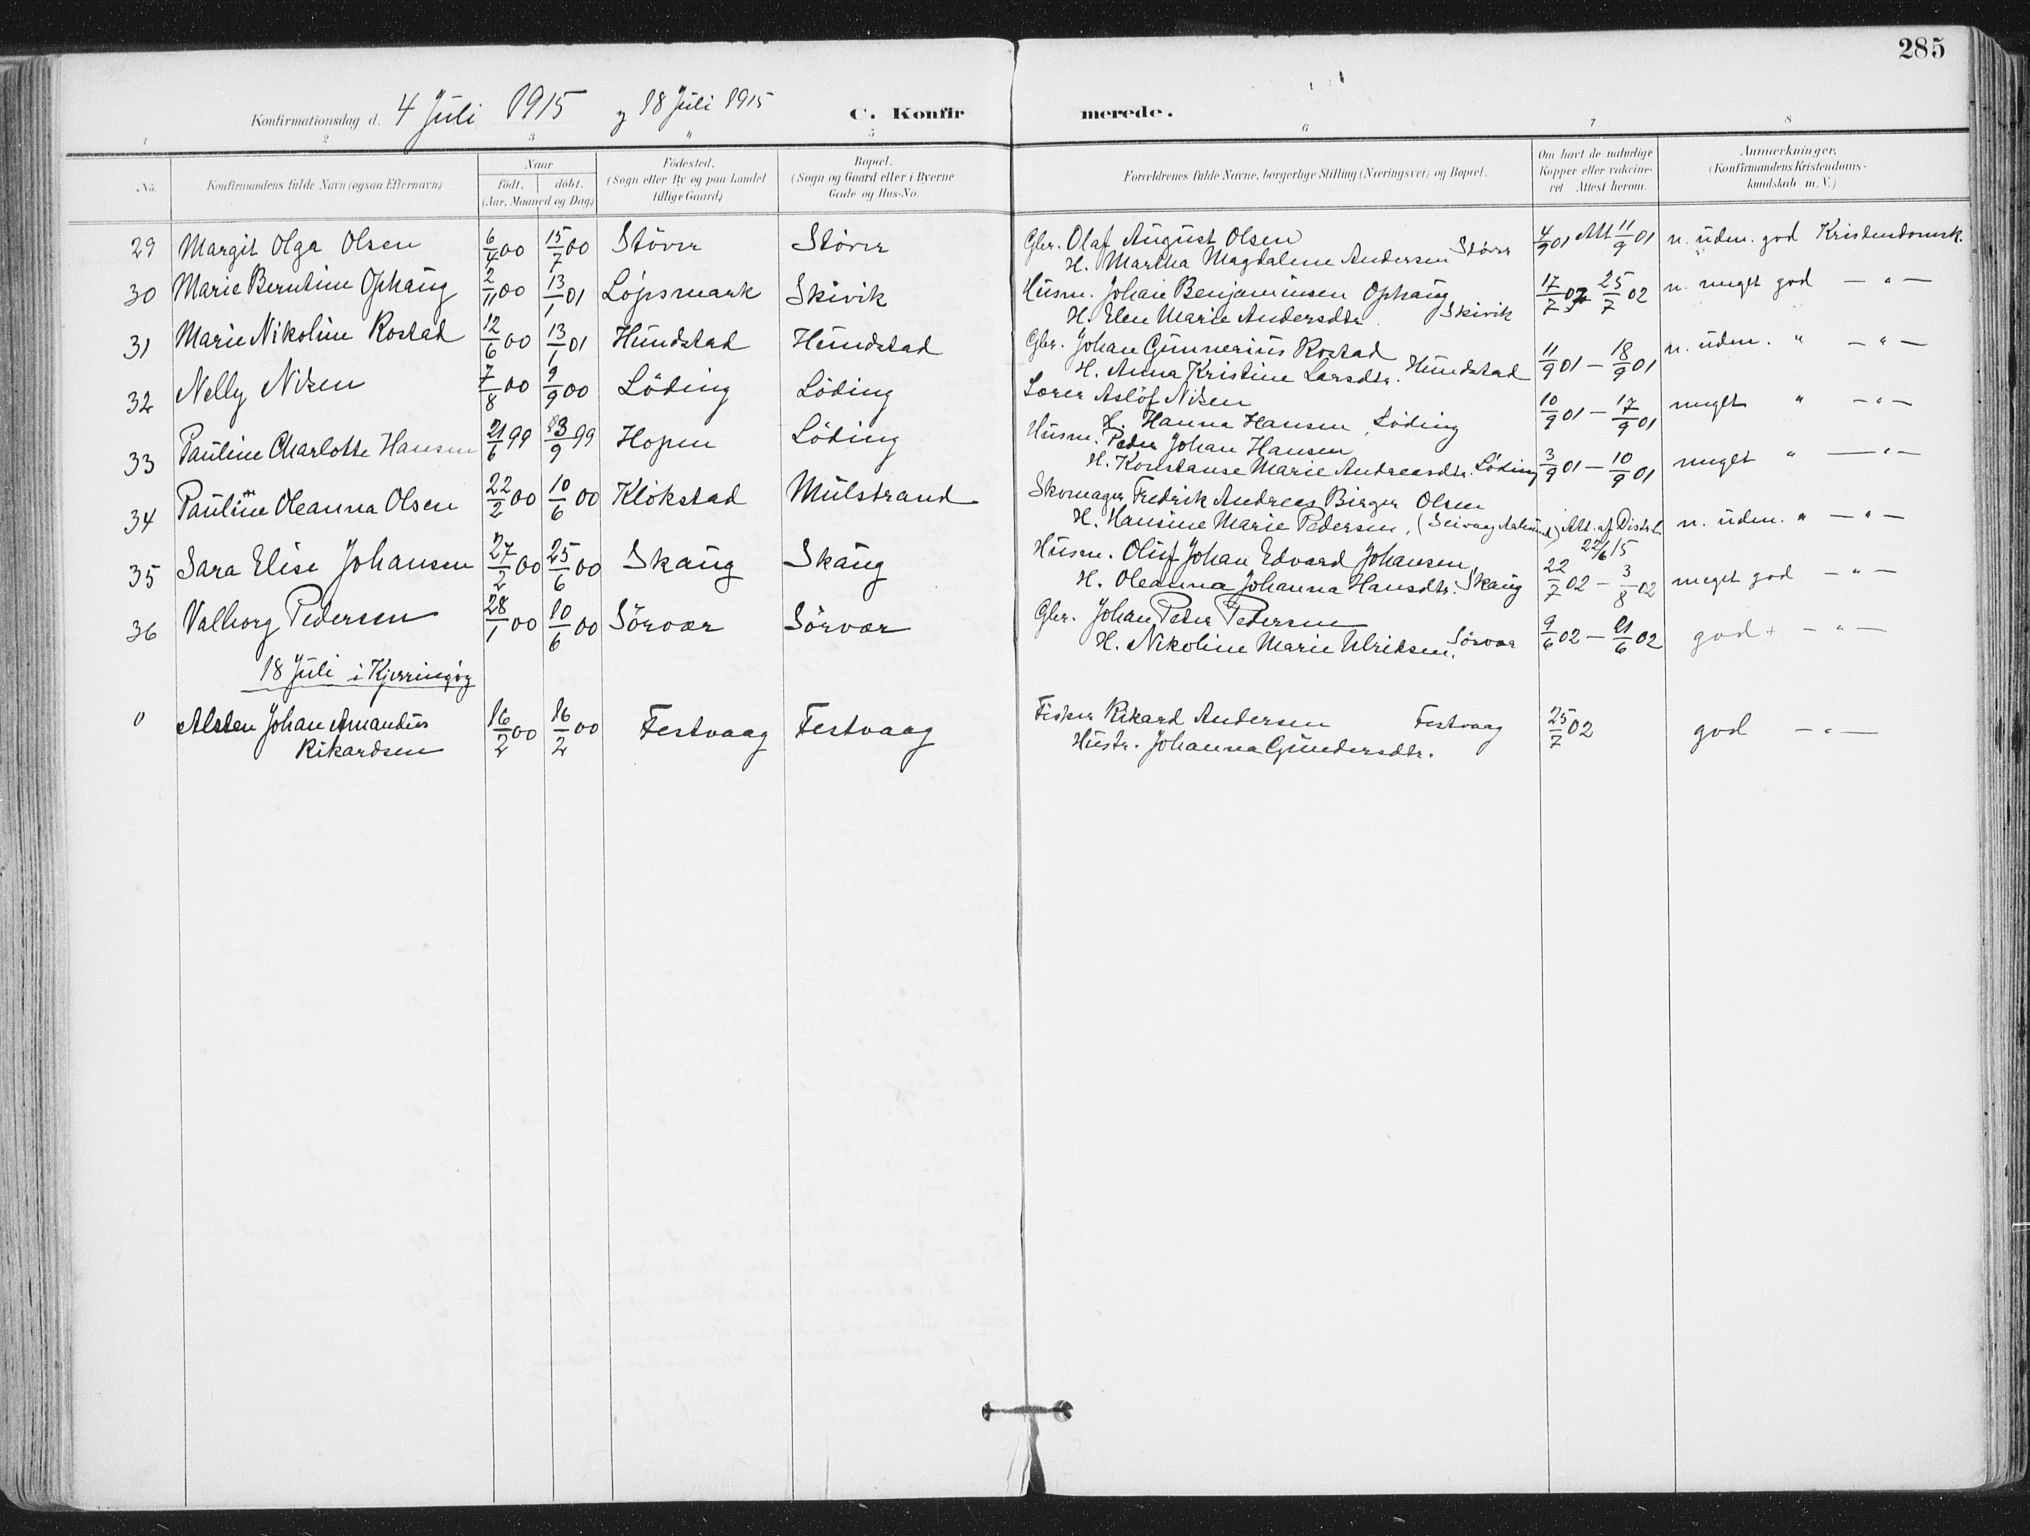 285
Konfirmationsdag d. 4 Juli 1915 og 18 Juli 1915 C. Konfirmerede.
1 2 3 4 5 6 7 8
No. Konfirmandens fulde Navn (ogsaa Efternavn) Naar født, døbt. (Aar, Maaned og Dag) Fødested. (Sogn eller By og paa Landet tillige Gaard) Bopæl. (Sogn og Gaard eller i Byerne Gade og Hus-No. Forældrenes fulde Navne, borgerlige Stilling (Næringsvei) og Bopæl. Om havt de naturlige Kopper eller vakcineret Attest herom. Anmærkninger. (Konfirmandens Kristendomskundskab m. V.)
29 Margit Olga Olsen 6/4 00 15/7 00 Støver Støver Gbr. Olaf August Olsen 4/9 01 Att 11/9 01 n. uden. god Kristendomsk.
H. Martha Magdalene Andersen Støver
30 Marie Berntine Ophaug 2/11 00 13/1 01 Løpsmark Skivik Husm. Johan Benjaminsen Ophaug 17/7 02 25/7 02 n. meget god — " —
H. Elen Marie Andersdtr. Skivik
31 Marie Nikoline Rostad 12/6 00 13/1 01 Hundstad Hundstad Gbr. Johan Gunnerius Rostad 11/9 01 — 18/9 01 n. uden. " — " —
H. Anna Kristine Larsdtr. Hundstad
32 Nelly Nilsen 7/8 00 9/9 00 Løding Løding Lærer Asløf Nilsen 10/9 01 — 17/9 01 meget " — " —
H. Hanna Hansen, Løding
33 Pauline Charlotte Hansen 21/6 99 3/9 99 Hopen Løding Husm. Peder Johan Hansen 3/9 01 — 10/9 01 meget " — " —
H. Konstanse Marie Andreasdtr. Løding
34 Pauline Oleanna Olsen 22/2 00 10/6 00 Kløkstad Mulstrand Skomager Fredrik Andreas Birger Olsen
H. Hansine Marie Pedersen, Att. af Distrl. 22/6 15 n. uden. " — " —
35 Sara Elise Johansen 27/2 00 25/6 00 Skaug Skaug Husm. Oluf Johan Edvard Johansen 22/7 02 — 3/8 02 meget god — " —
H. Oleanna Johanna Hansdtr. Skaug
36 Valborg Pedersen 28/1 00 10/6 00 Sørvær Sørvær Gbr. Johan Peter Pedersen 9/6 02 — 21/6 02 god + — " —
H. Nikoline Marie Ulriksen. Sørvær
18 Juli i Kjerringøy
" Alsten Johan Amandus 16/2 00 16/2 00 Festvaag Festvaag Fisker Rikard Andersen Festvaag 25/7 02 god — " —
Rikardsen Hustr. Johanna Gundersdtr.